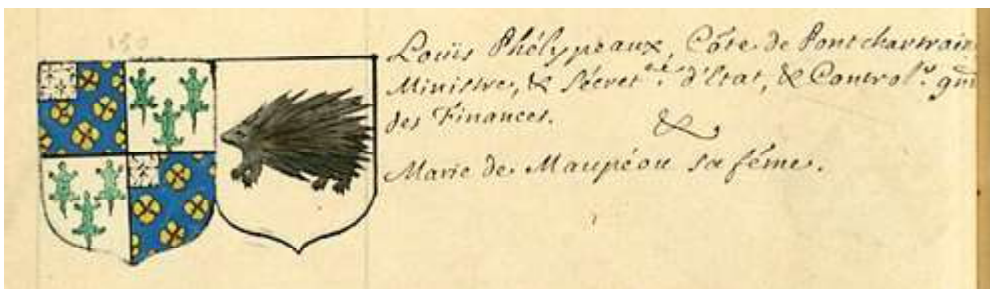 150
Loüis Phélypeaux, Cõte de Pontchartrain
Ministre, & Sécret.re d'Etat, & Control.r gñ
des Finances.
&
Marie de Maupéou sa féme.